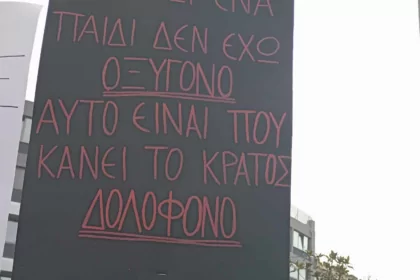 ΕΝΑ
ΠΑΙΔΙ ΔΕΝ ΕΧΩ
ΟΞΥΓΟΝΟ
ΑΥΤΟ ΕΙΝΑΙ ΠΟΥ
ΚΑΝΕΙ ΤΟ ΚΡΑΤΟΣ
ΔΟΛΟΦΟΝΟ